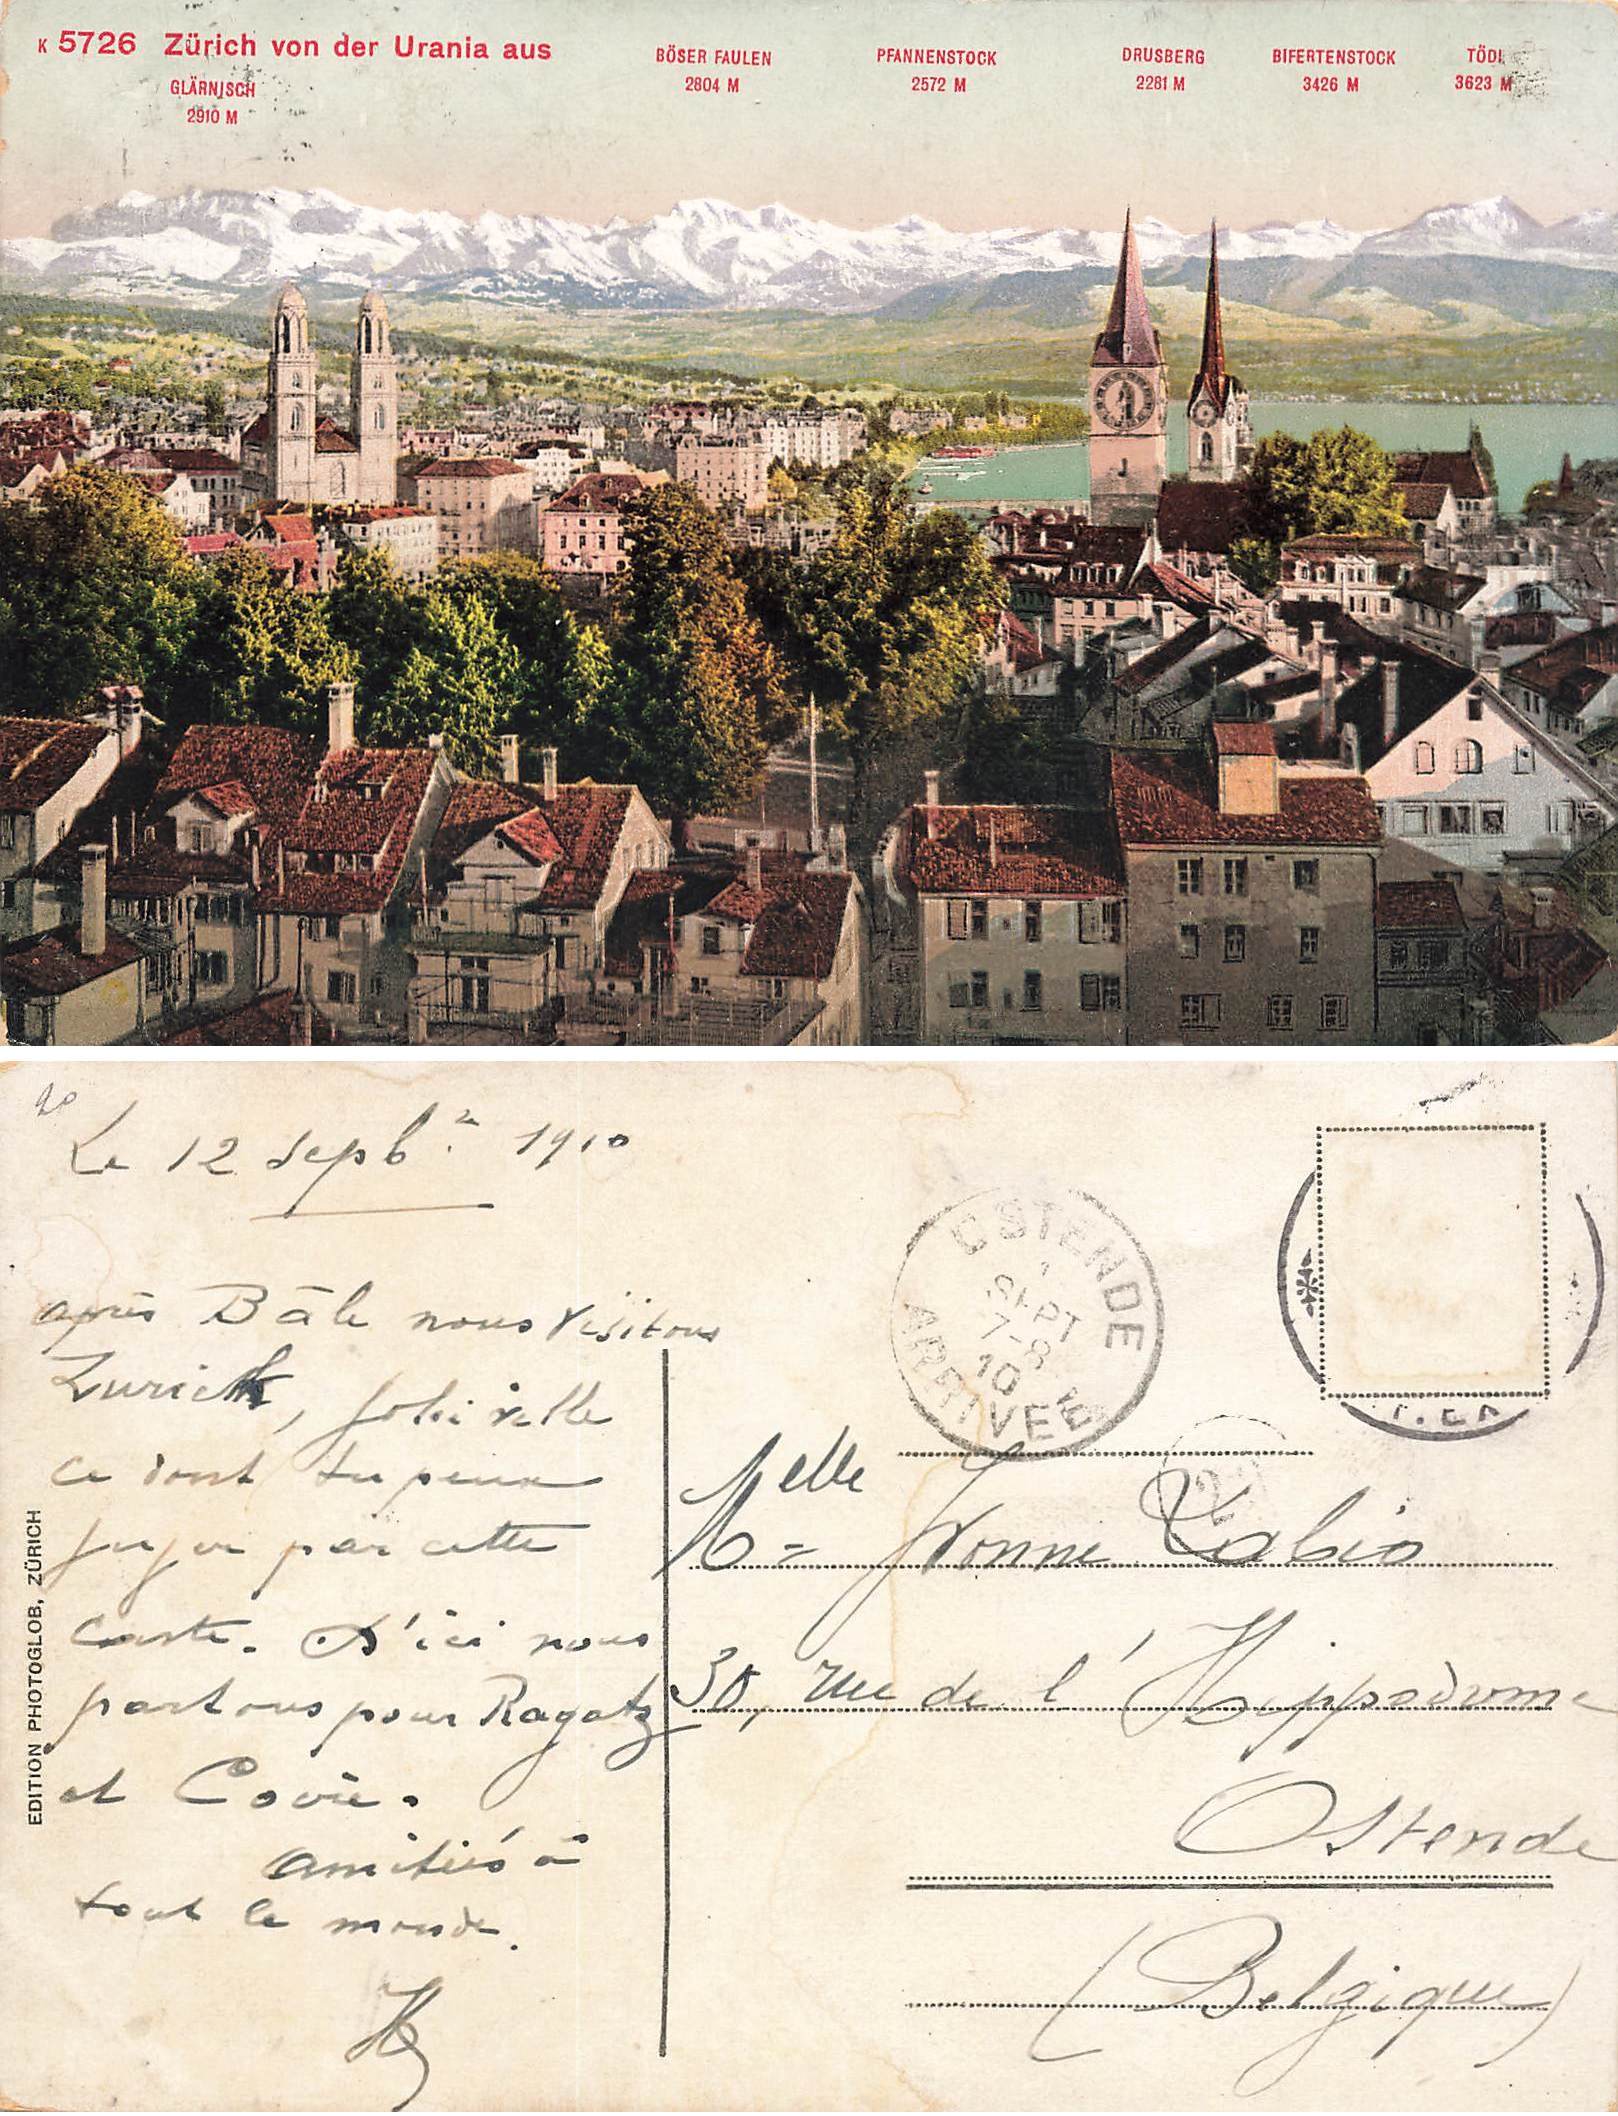 K 5726 Zürich von der Urania aus
GLÄRNISCH
2910 M
BÖSER FAULEN
2804 M
PFANNENSTOCK
2572 M
DRUSBERG
2281 M
BIFERTENSTOCK
3426 M
TÖDI
3623 M
20
Le 12 septb.re 1910
après Bâle nous visitons
Zurich, jolie ville
ce dont tu peux
juger par cette
carte. D'ici nous
partons pour Ragatz
et Coire.
amitiés à
tout le monde.
EDITION PHOTOGLOB, ZÜRICH
OSTENDE
SEPT
7-8
10
ARRIVEE
Melle Yvonne
30, rue de l'Hippodrome
Ostende
(Belgique)